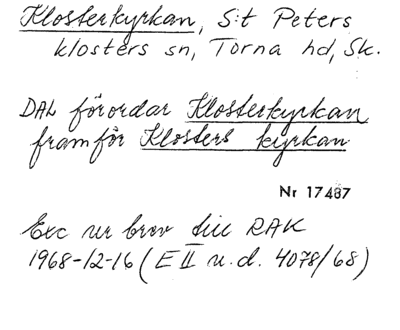 Klosterkyrkan, S:t Peters
klosters sn, Torna hd, Sk.
DAL förordar Klosterkyrkan
framför Klosters kyrkan
Nr 17487
Exc ur brev till RAK
1968-12-16 (E II u.d. 4078/68)